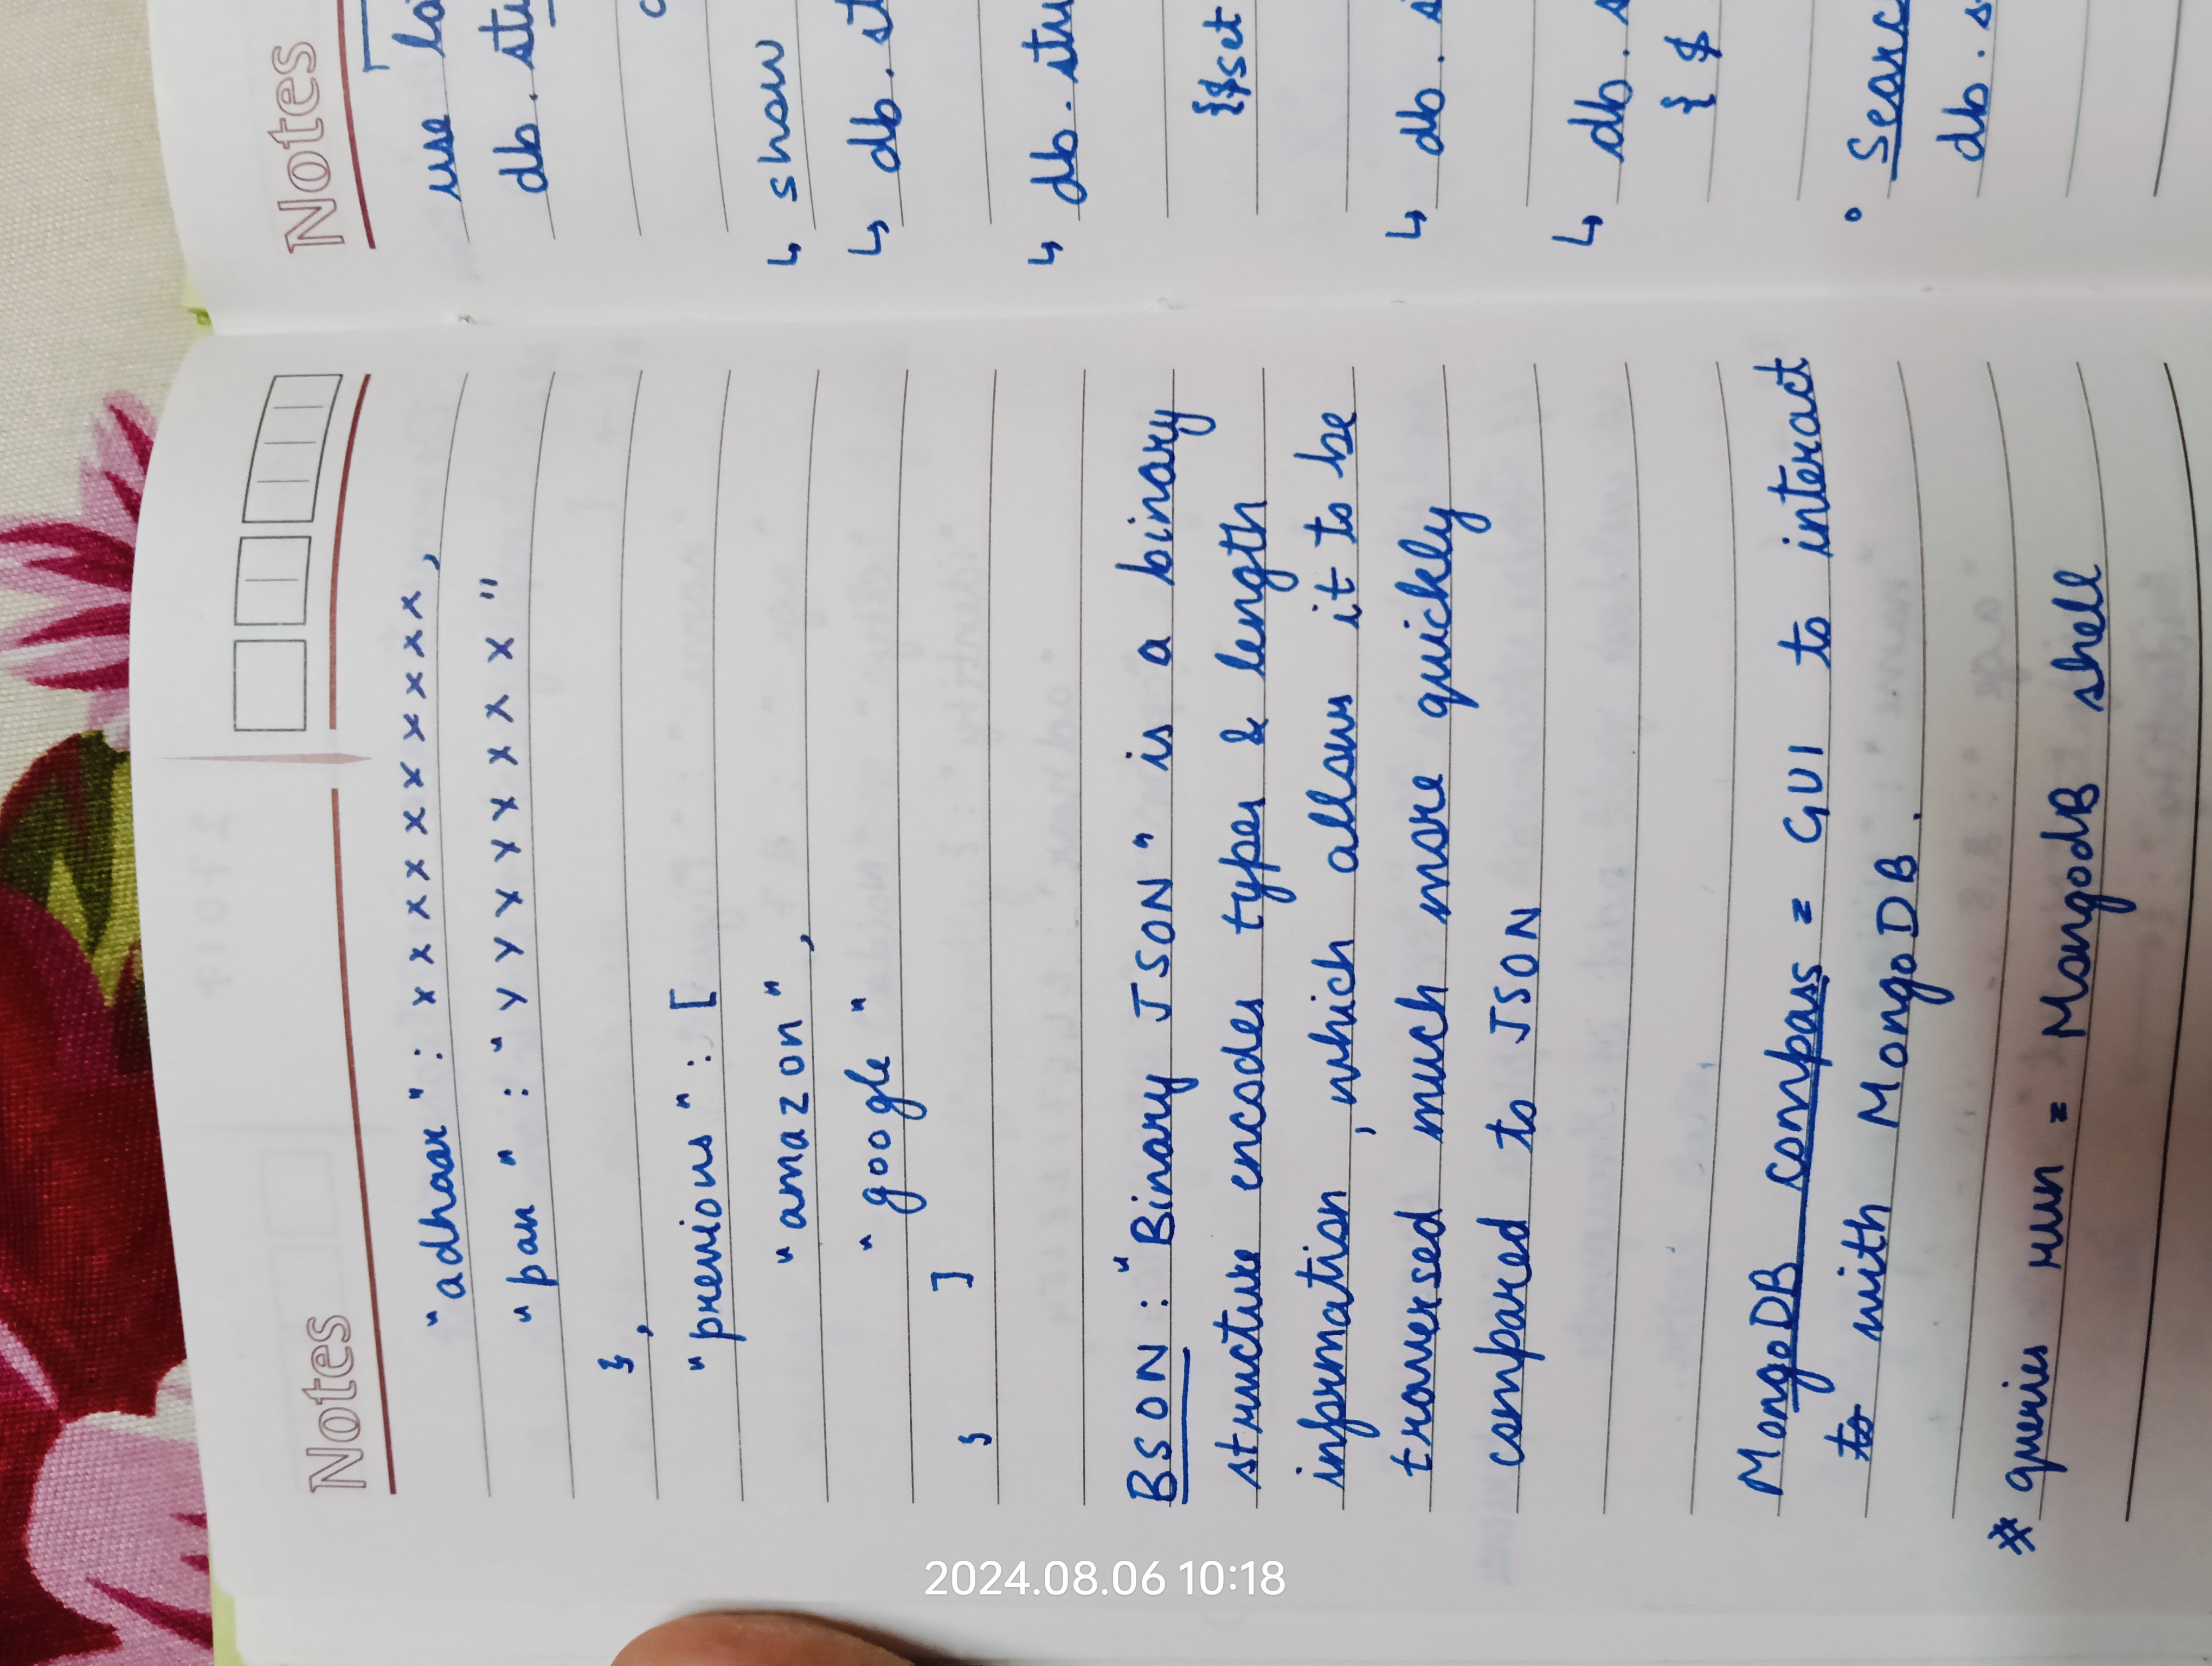 Notes
"adhaar" : x x x x x x x x x x,
"pan" : "y y y x y x x x x"
},
"previous" : [
"amazon",
"google"
]
}
BSON : "Binary JSON" is a binary
structure encodes type & length
information, which allows it to be
traversed much more quickly
compared to JSON
MongoDB compass = GUI to interact
to with MongoDB.
* queries run = MongodB shell
Notes
use
db.
↳ show
↳ db.
↳ db.
{$set
↳ db.
↳ db.
{ $
db.
2024.08.06 10:18